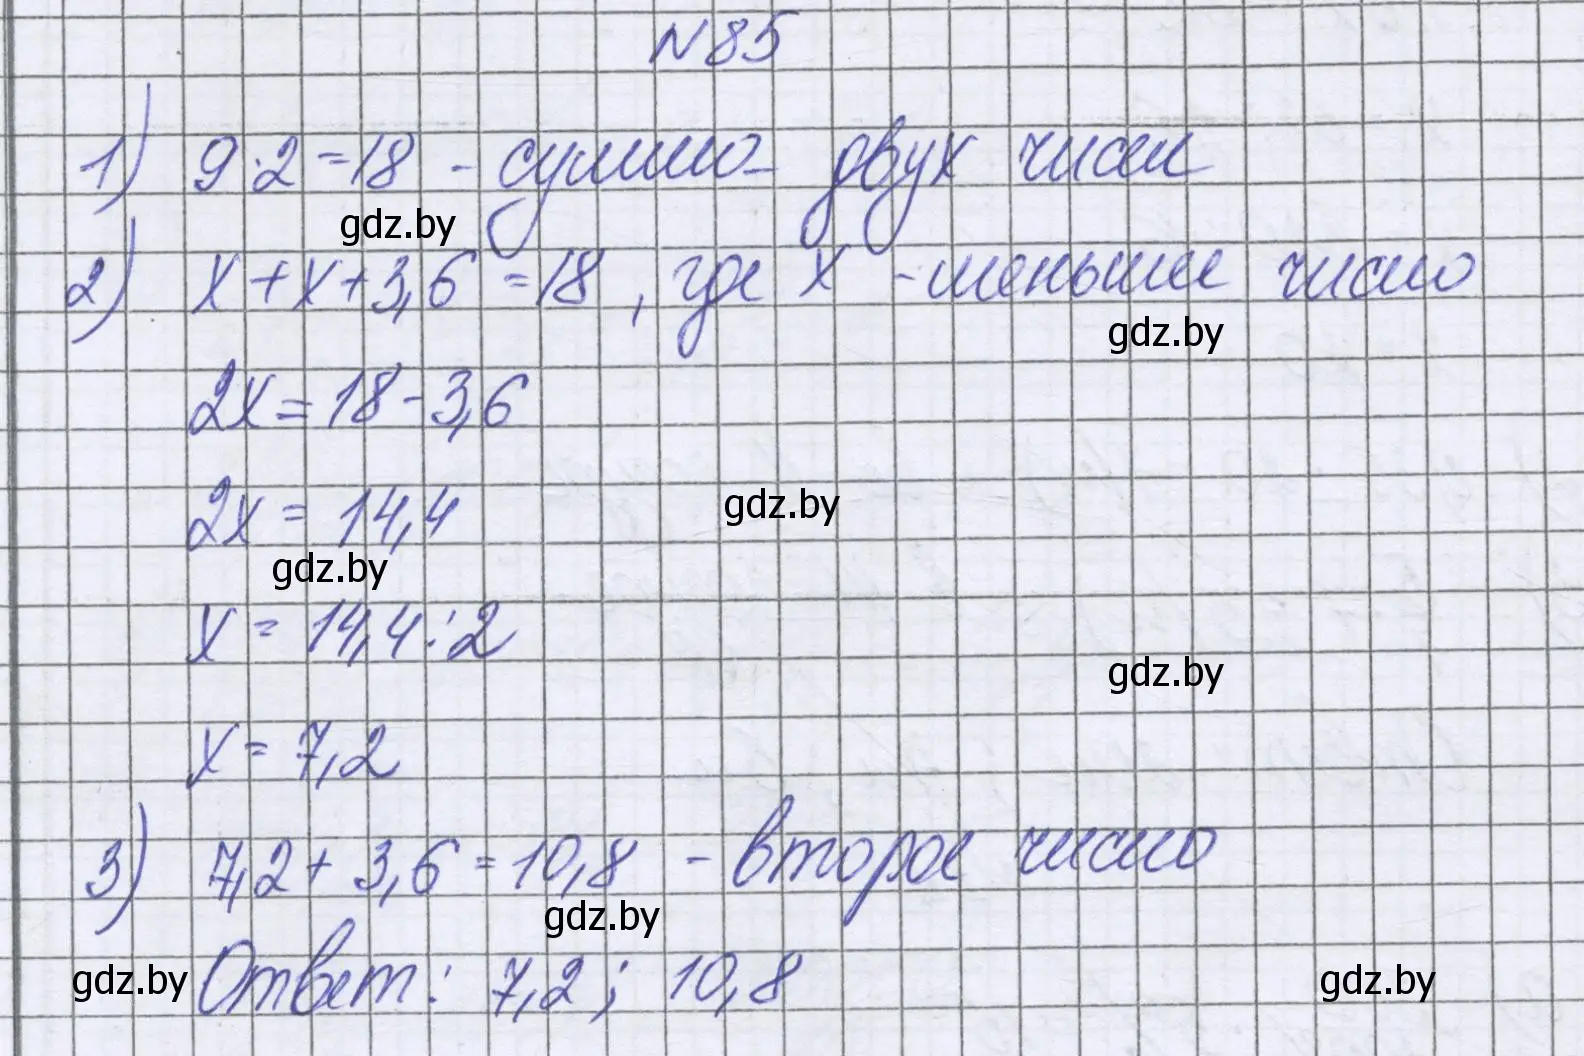 N85
1) 9·2=18 - сумма двух чисел
gdz.by
2) x+x+3,6=18, где x - меньшее число
gdz.by
2x=18-3,6
2x=14,4
gdz.by
gdz.by
x=14,4:2
gdz.by
x=7,2
3) 7,2+3,6=10,8 - второе число
gdz.by
Ответ: 7,2; 10,8
gdz.by
gdz.by